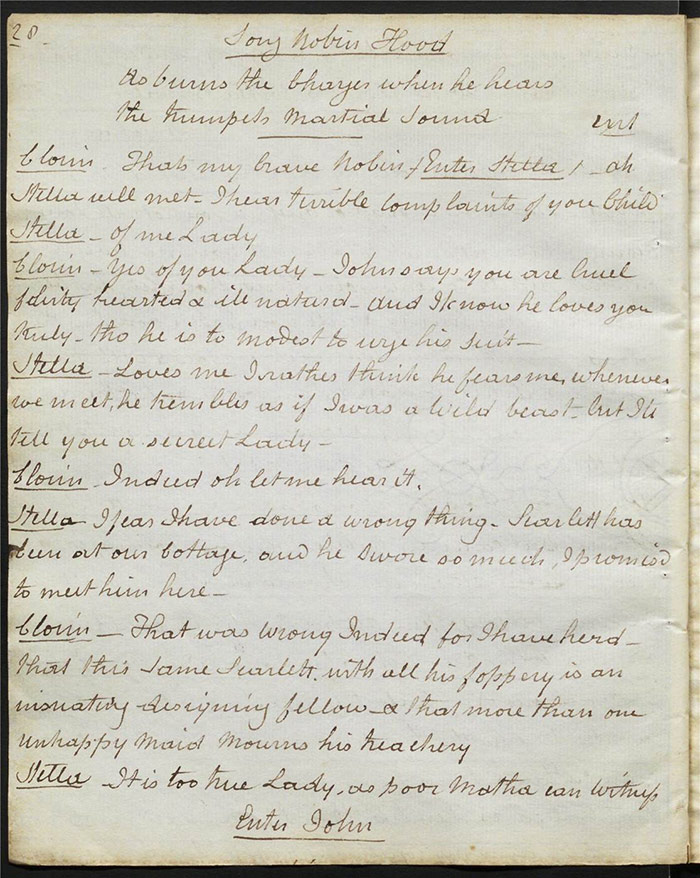 28
Song Robin Hood
As burns the Charger when he hears
the trumpets Martial Sound
exit
Clorin - Thats my brave Robin / Enter Stella / - ah
Stella well met - I hear terrible Complaints of you Child
Stella - of me Lady
Clorin - Yes of you Lady - John says you are Cruel
flinty hearted & ill naturd - and I know he loves you
truly - tho he is to modest to urge his suit -
Stella - Loves me I rather think he fears me, whenever
we meet, he trembles as if I was a Wild beast - but I'll
tell you a secreet Lady -
Clorin - Indeed oh let me hear it.
Stella - I fear I have done a wrong thing - Scarlett has
been at our Cottage, and he swore so much, I promis'd
to meet him here -
Clorin - That was wrong Indeed for I have herd -
that this same Scarlett, with all his foppery is an
insnuating designing fellow - & that more than one
unhappy Maid Mourns his treachery
Stella - It is too true Lady, as poor Matha can Witness
Enter John